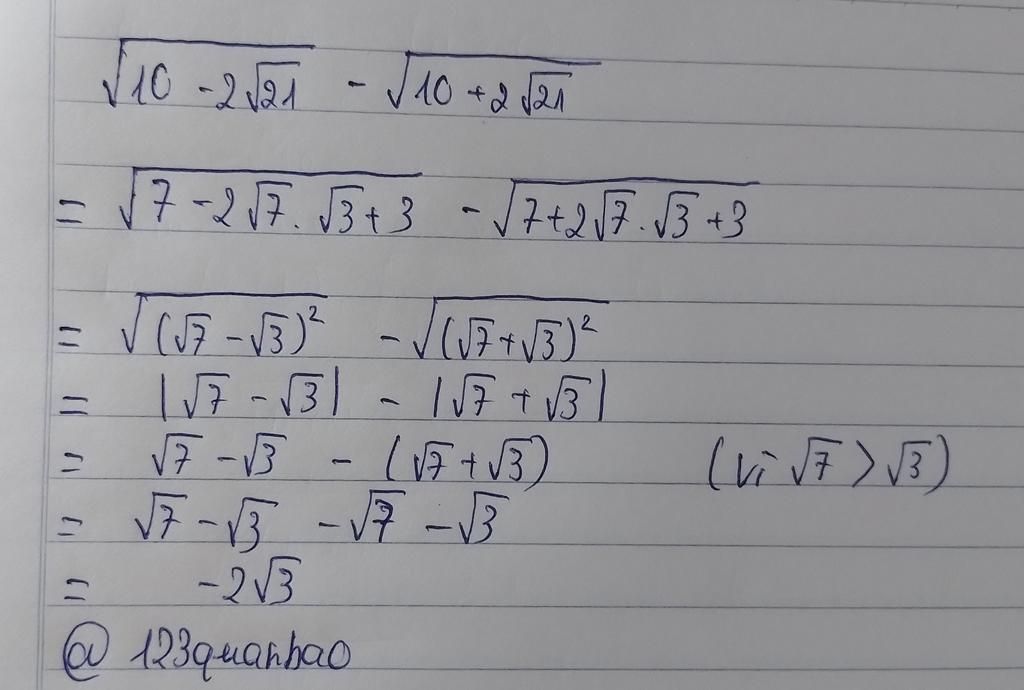 √(10 - 2√21) - √(10 + 2√21)
= √(7 - 2√7 . √3 + 3) - √(7 + 2√7 . √3 + 3)
= √((√7 - √3)²) - √((√7 + √3)²)
= |√7 - √3| - |√7 + √3|
= √7 - √3 - (√7 + √3) (vì √7 > √3)
= √7 - √3 - √7 - √3
= -2√3
@ 123quanbao